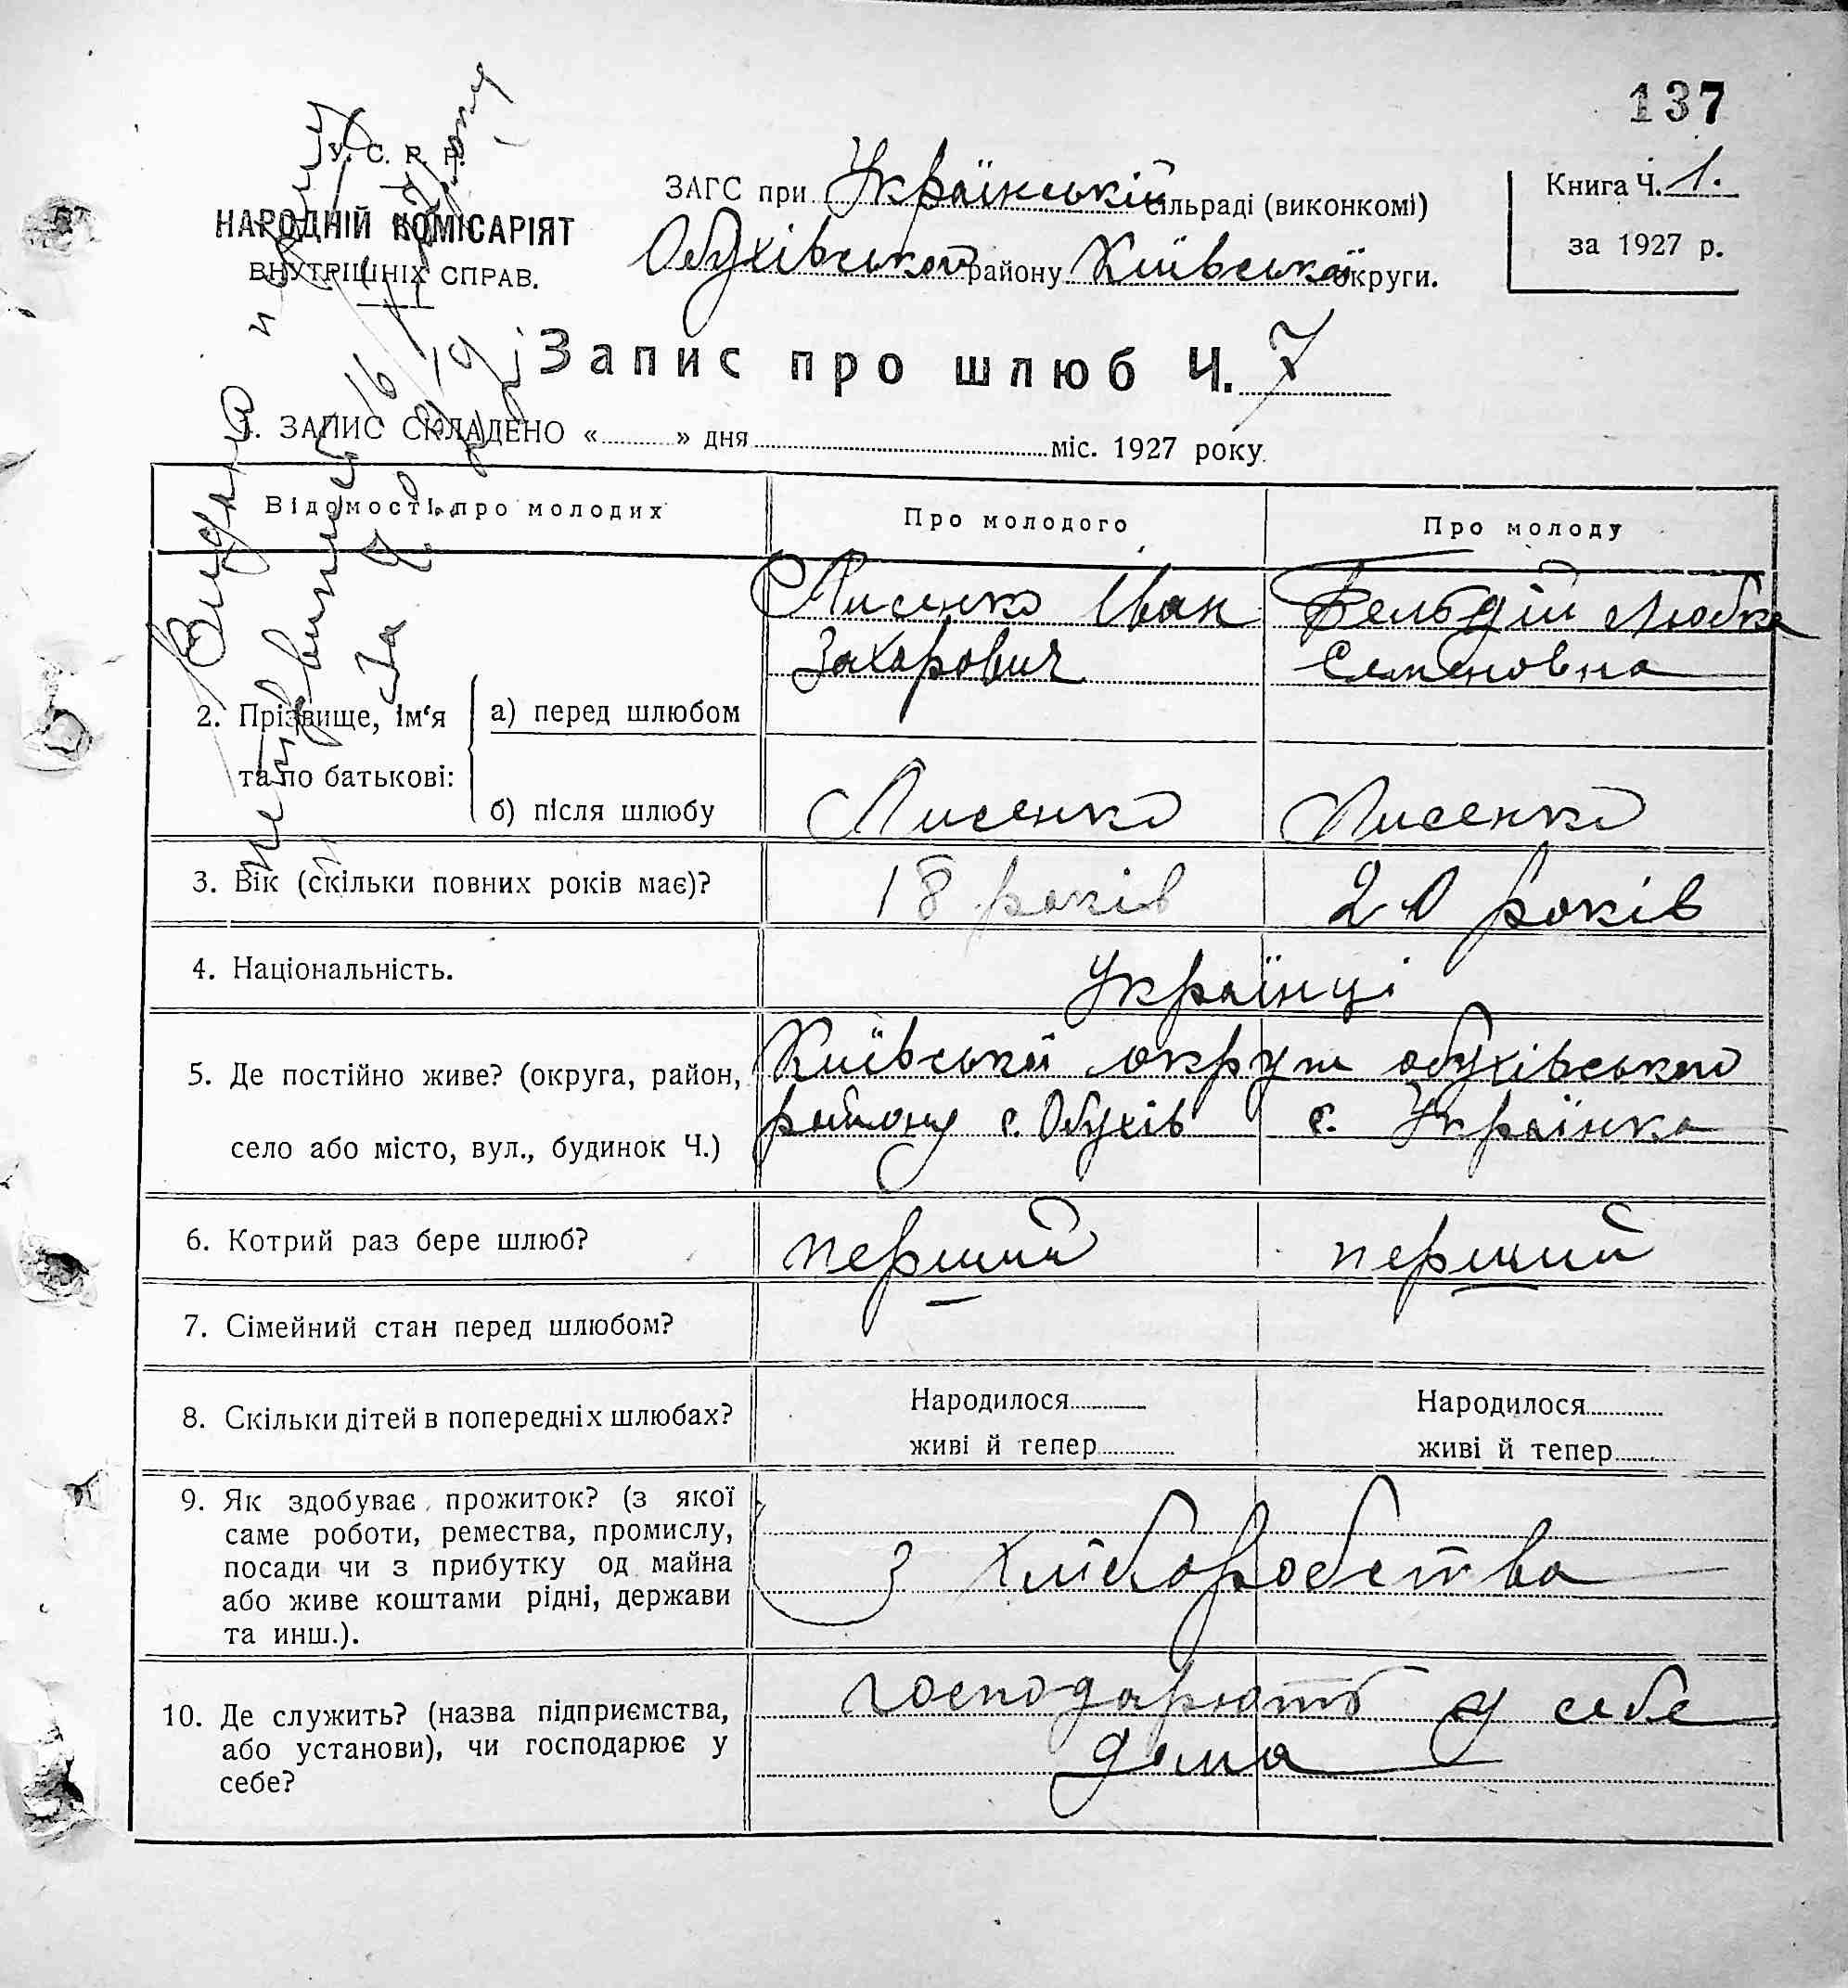 137
У. С. Р. Р.
НАРОДНІЙ КОМІСАРІЯТ
ВНУТРІШНІХ СПРАВ.
ЗАГС при Українській сільраді (виконкомі)
Обухівського району Київської округи.
Книга Ч. 1.
за 1927 р.
Запис про шлюб Ч. 7
1. ЗАПИС СКЛАДЕНО « » дня міс. 1927 року.
Відомості про молодих
Про молодого
Про молоду
2. Прізвище, ім'я
та по батькові:
а) перед шлюбом
Лисенко Іван
Захарович
Бельдій Любка
Семеновна
б) після шлюбу
Лисенко
Лисенко
3. Вік (скільки повних років має)?
18 років
20 років
4. Національність.
Українці
5. Де постійно живе? (округа, район,
село або місто, вул., будинок Ч.)
Київської округи обухівського
району с. Обухів с. Українка
6. Котрий раз бере шлюб?
перший
перший
7. Сімейний стан перед шлюбом?
8. Скільки дітей в попередніх шлюбах?
Народилося
живі й тепер
Народилося
живі й тепер
9. Як здобуває прожиток? (з якої
саме роботи, ремества, промислу,
посади чи з прибутку од майна
або живе коштами рідні, держави
та инш.).
З хліборобства
10. Де служить? (назва підприємства,
або установи), чи господарює у
себе?
господарюють у себе
дома
Видана